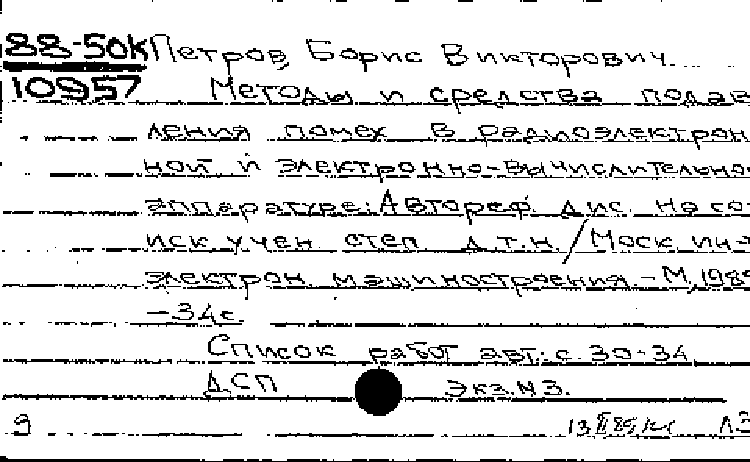 88-50К Петров Борис Викторович.
10957 Методы и средства подав
ления помех в радиоэлектрон
ной и электронно-вычислительно
аппаратуре: Автореф. дис. на со
иск. учен степ. д.т.н. / Моск. ин-
электрон. машиностроения. - М., 198
-34с.
Список работ авт.: с. 30-34
ДСП Экз.№3.
9